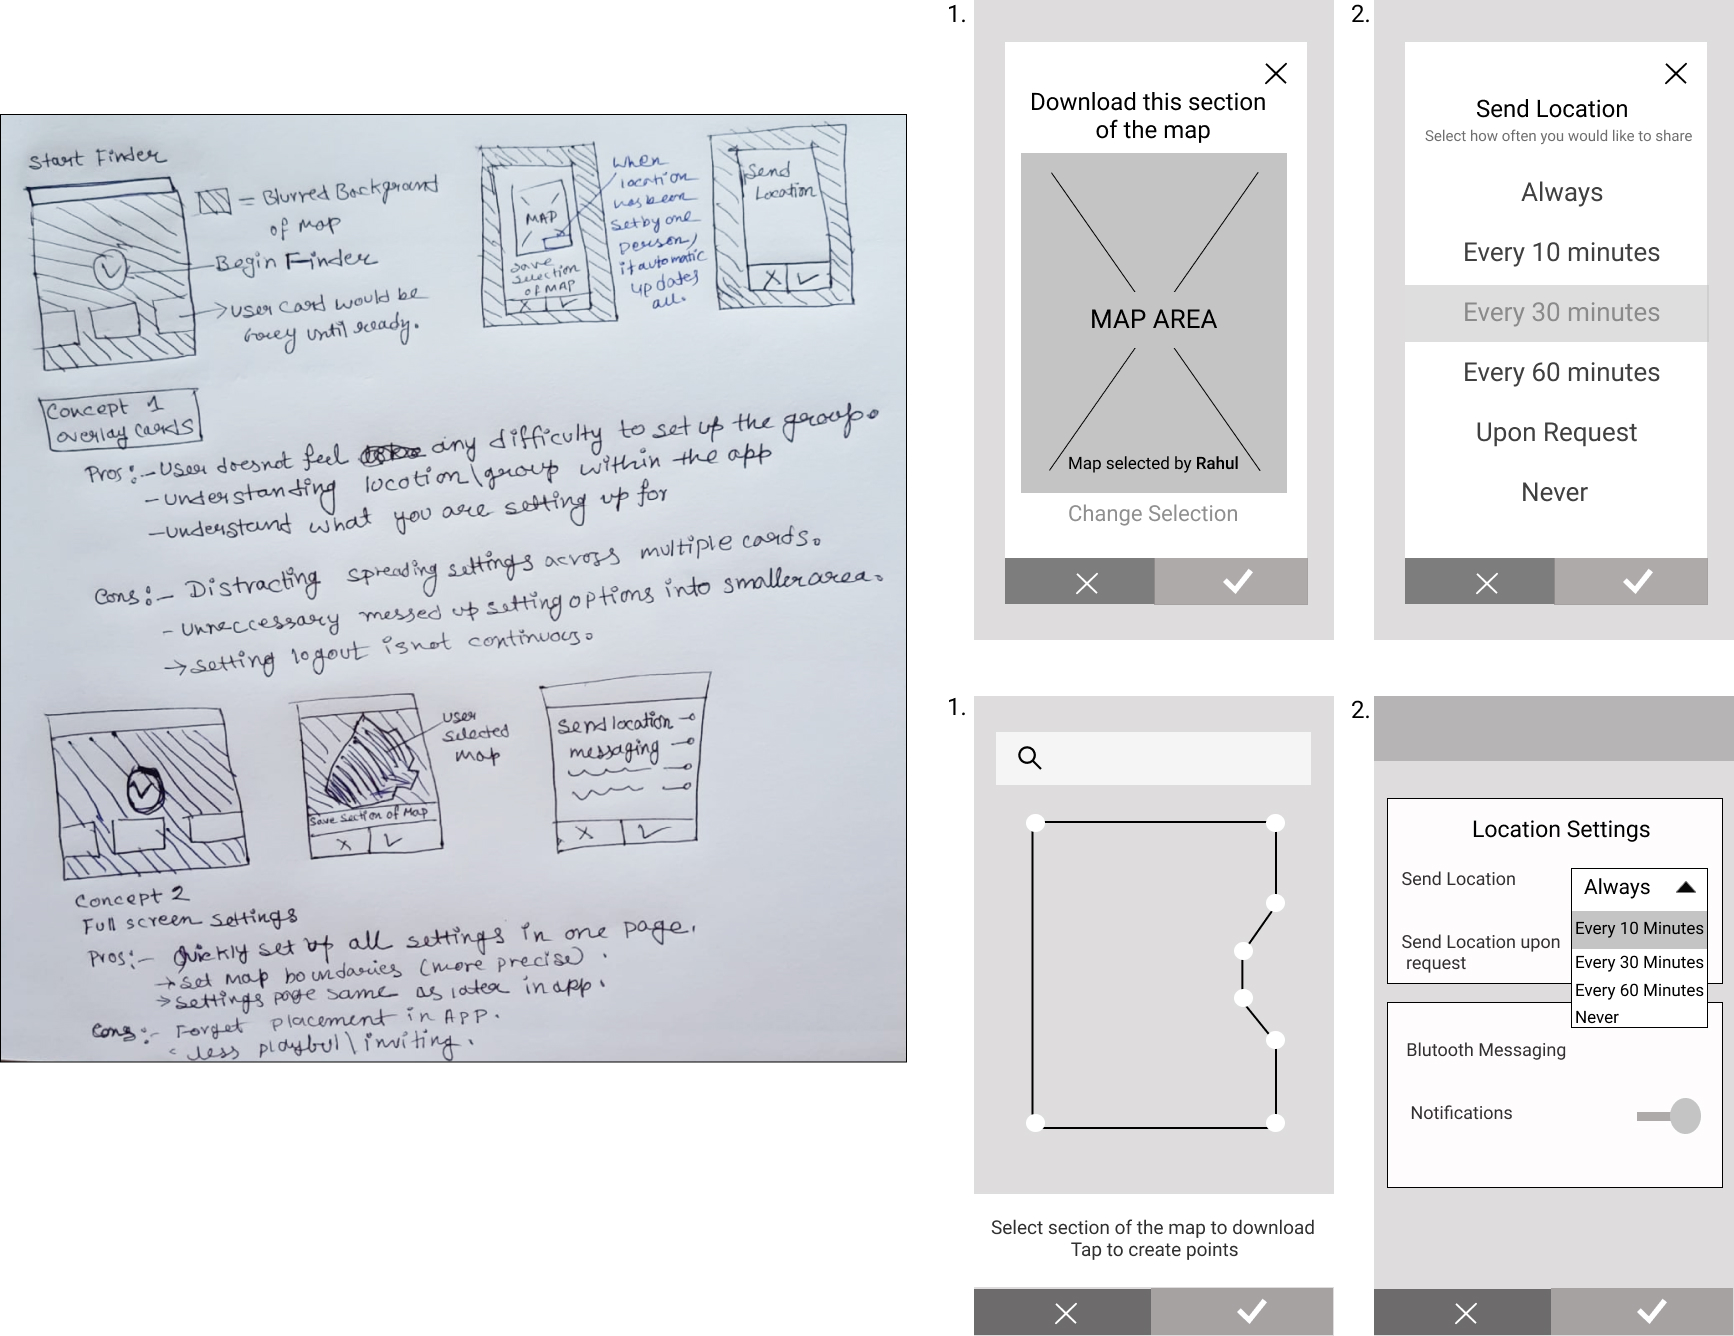 Start Finder
= Blurred Background
of map
Begin Finder
user card would be
Grey until ready.
MAP
save
selection
of MAP
X
when
location
has been
set by one
person,
it automatic
updates
all.
Send
Location
X
Concept 1
overlay cards
Pros:- User doesnot feel any difficulty to set up the group.
- understanding location\group within the app
- understand what you are setting up for
Cons:- Distracting spreading settings across multiple cards.
- unneccessary messed up setting options into smaller area.
→ setting logout is not continuous.
user
selected
map
Save Section of Map
X
Send location
messaging
X
Concept 2
Full screen settings
Pros:- Quickly set up all settings in one page.
→ set map boundaries (more precise).
→ settings page same as later in app.
Cons:- Forget placement in APP.
less playful\inviting.
1.
Download this section
of the map
MAP AREA
Map selected by Rahul
Change Selection
2.
Send Location
Select how often you would like to share
Always
Every 10 minutes
Every 30 minutes
Every 60 minutes
Upon Request
Never
1.
Select section of the map to download
Tap to create points
2.
Location Settings
Send Location
Always
Every 10 Minutes
Send Location upon
request
Every 30 Minutes
Every 60 Minutes
Never
Blutooth Messaging
Notifications